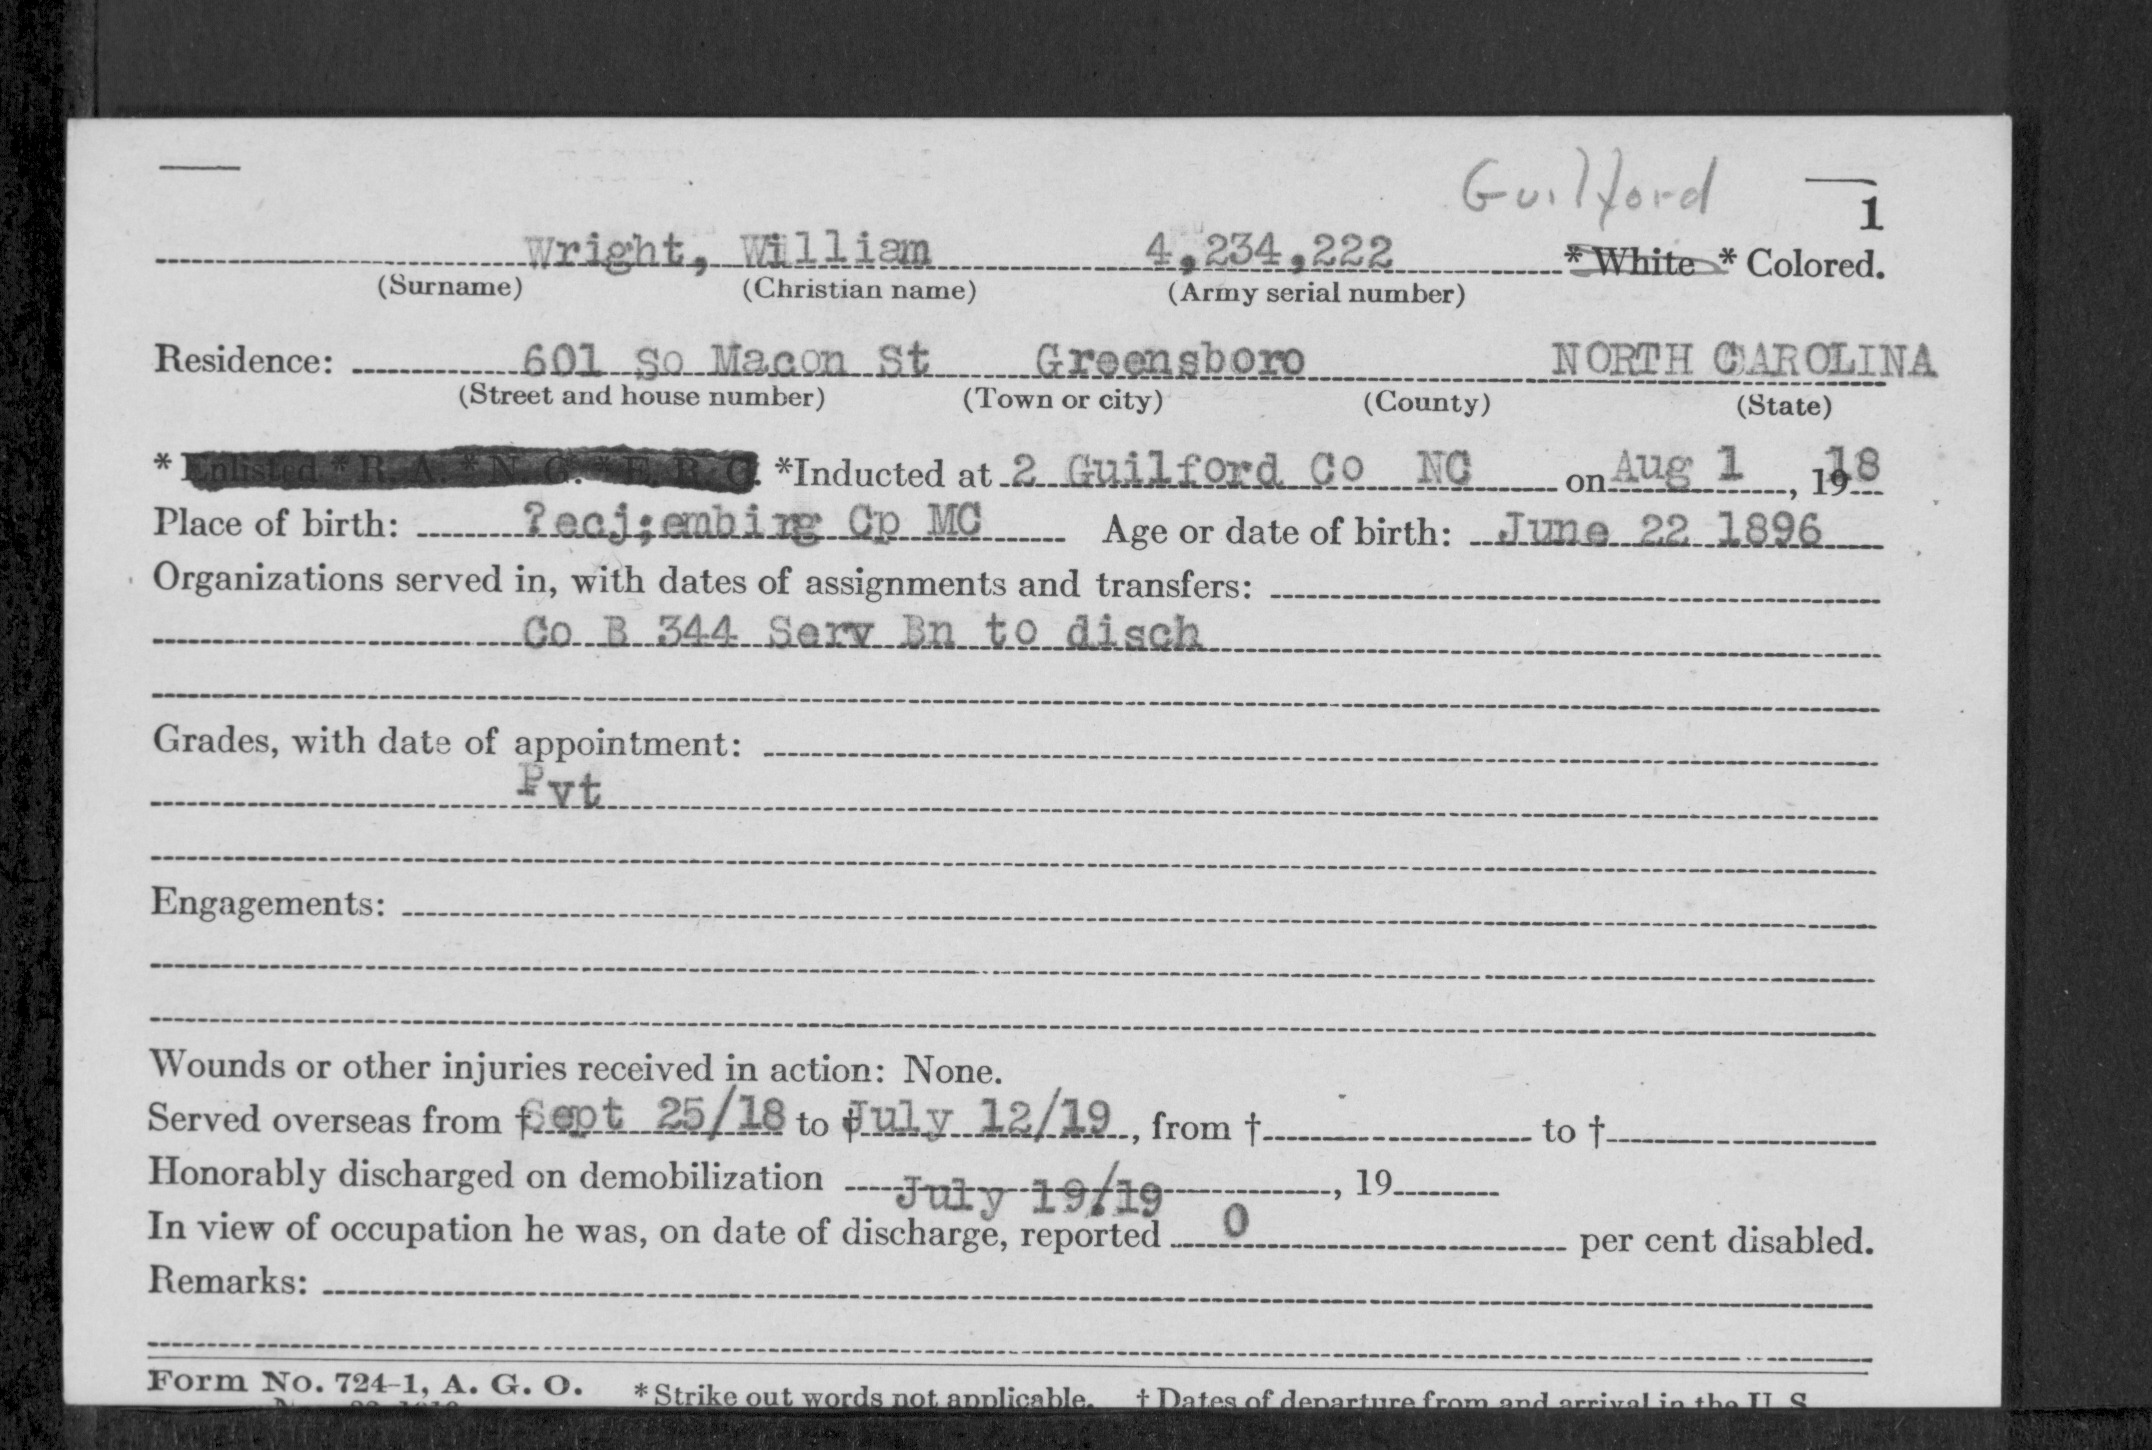 Guilford
1
Wright, William 4,234,222 * White * Colored.
(Surname) (Christian name) (Army serial number)
Residence: 601 So Macon St Greensboro NORTH CAROLINA
(Street and house number) (Town or city) (County) (State)
* Enlisted * R. A. * N. G. * E. R. C. *Inducted at 2 Guilford Co NC on Aug 1, 1918
Place of birth: ?ecj;embirg Cp MC Age or date of birth: June 22 1896
Organizations served in, with dates of assignments and transfers:
Co B 344 Serv Bn to disch
Grades, with date of appointment:
Pvt
Engagements:
Wounds or other injuries received in action: None.
Served overseas from † Sept 25/18 to † July 12/19, from † to †
Honorably discharged on demobilization July 19/19, 19
In view of occupation he was, on date of discharge, reported 0 per cent disabled.
Remarks:
Form No. 724-1, A. G. O. * Strike out words not applicable. † Dates of departure from and arrival in the U. S.